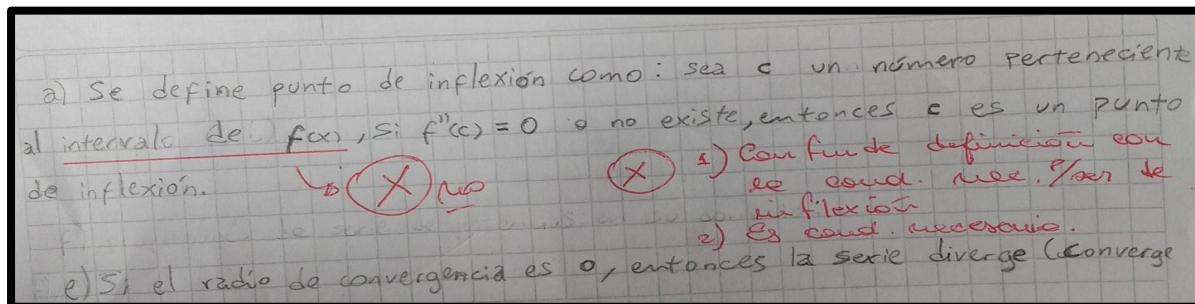 a) Se define punto de inflexión como: sea c un número perteneciente
al intervalo de f(x), si f''(c) = 0 o no existe, entonces c es un punto
de inflexión.
X no
X 1) Confunde definición con
cond. nec. p/ser de
inflexión
2) Es cond. necesaria.
e) Si el radio de convergencia es 0, entonces la serie diverge (converge